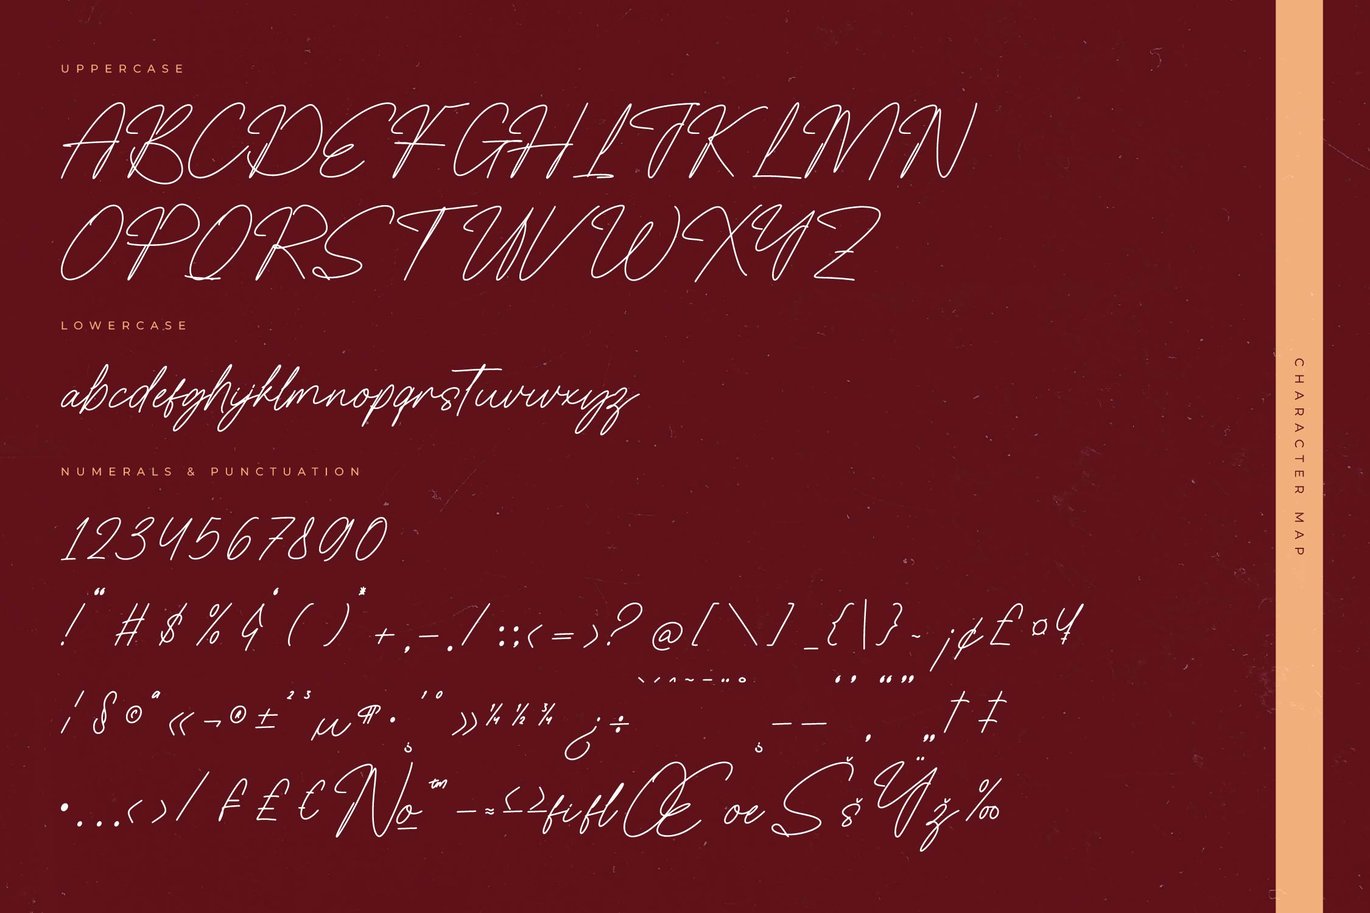 UPPERCASE
ABCDEFGHIJKLMN
OPQRSTUVWXYZ
LOWERCASE
abcdefghijklmnopqrstuvwxyz
NUMERALS & PUNCTUATION
1234567890
! " # $ % & ' ( ) * + , - . / : ; < = > ? @ [ \ ] _ { | } ~ ¡ ¢ £ ¤ ¥
¦ § © ª « ¬ ® ± ² ³ µ ¶ · ¸ ¹ º » ¼ ½ ¾ ¿ ÷ ` ´ ^ ~ ¯ ¨ ° ¸ – — ‘ ’ ‚ “ ” „ † ‡
• … ‹ › ⁄ ₣ ₤ € № ™ − ≈ ≤ ≥ fi fl Œ œ Š š Ÿ ž ‰
CHARACTER MAP